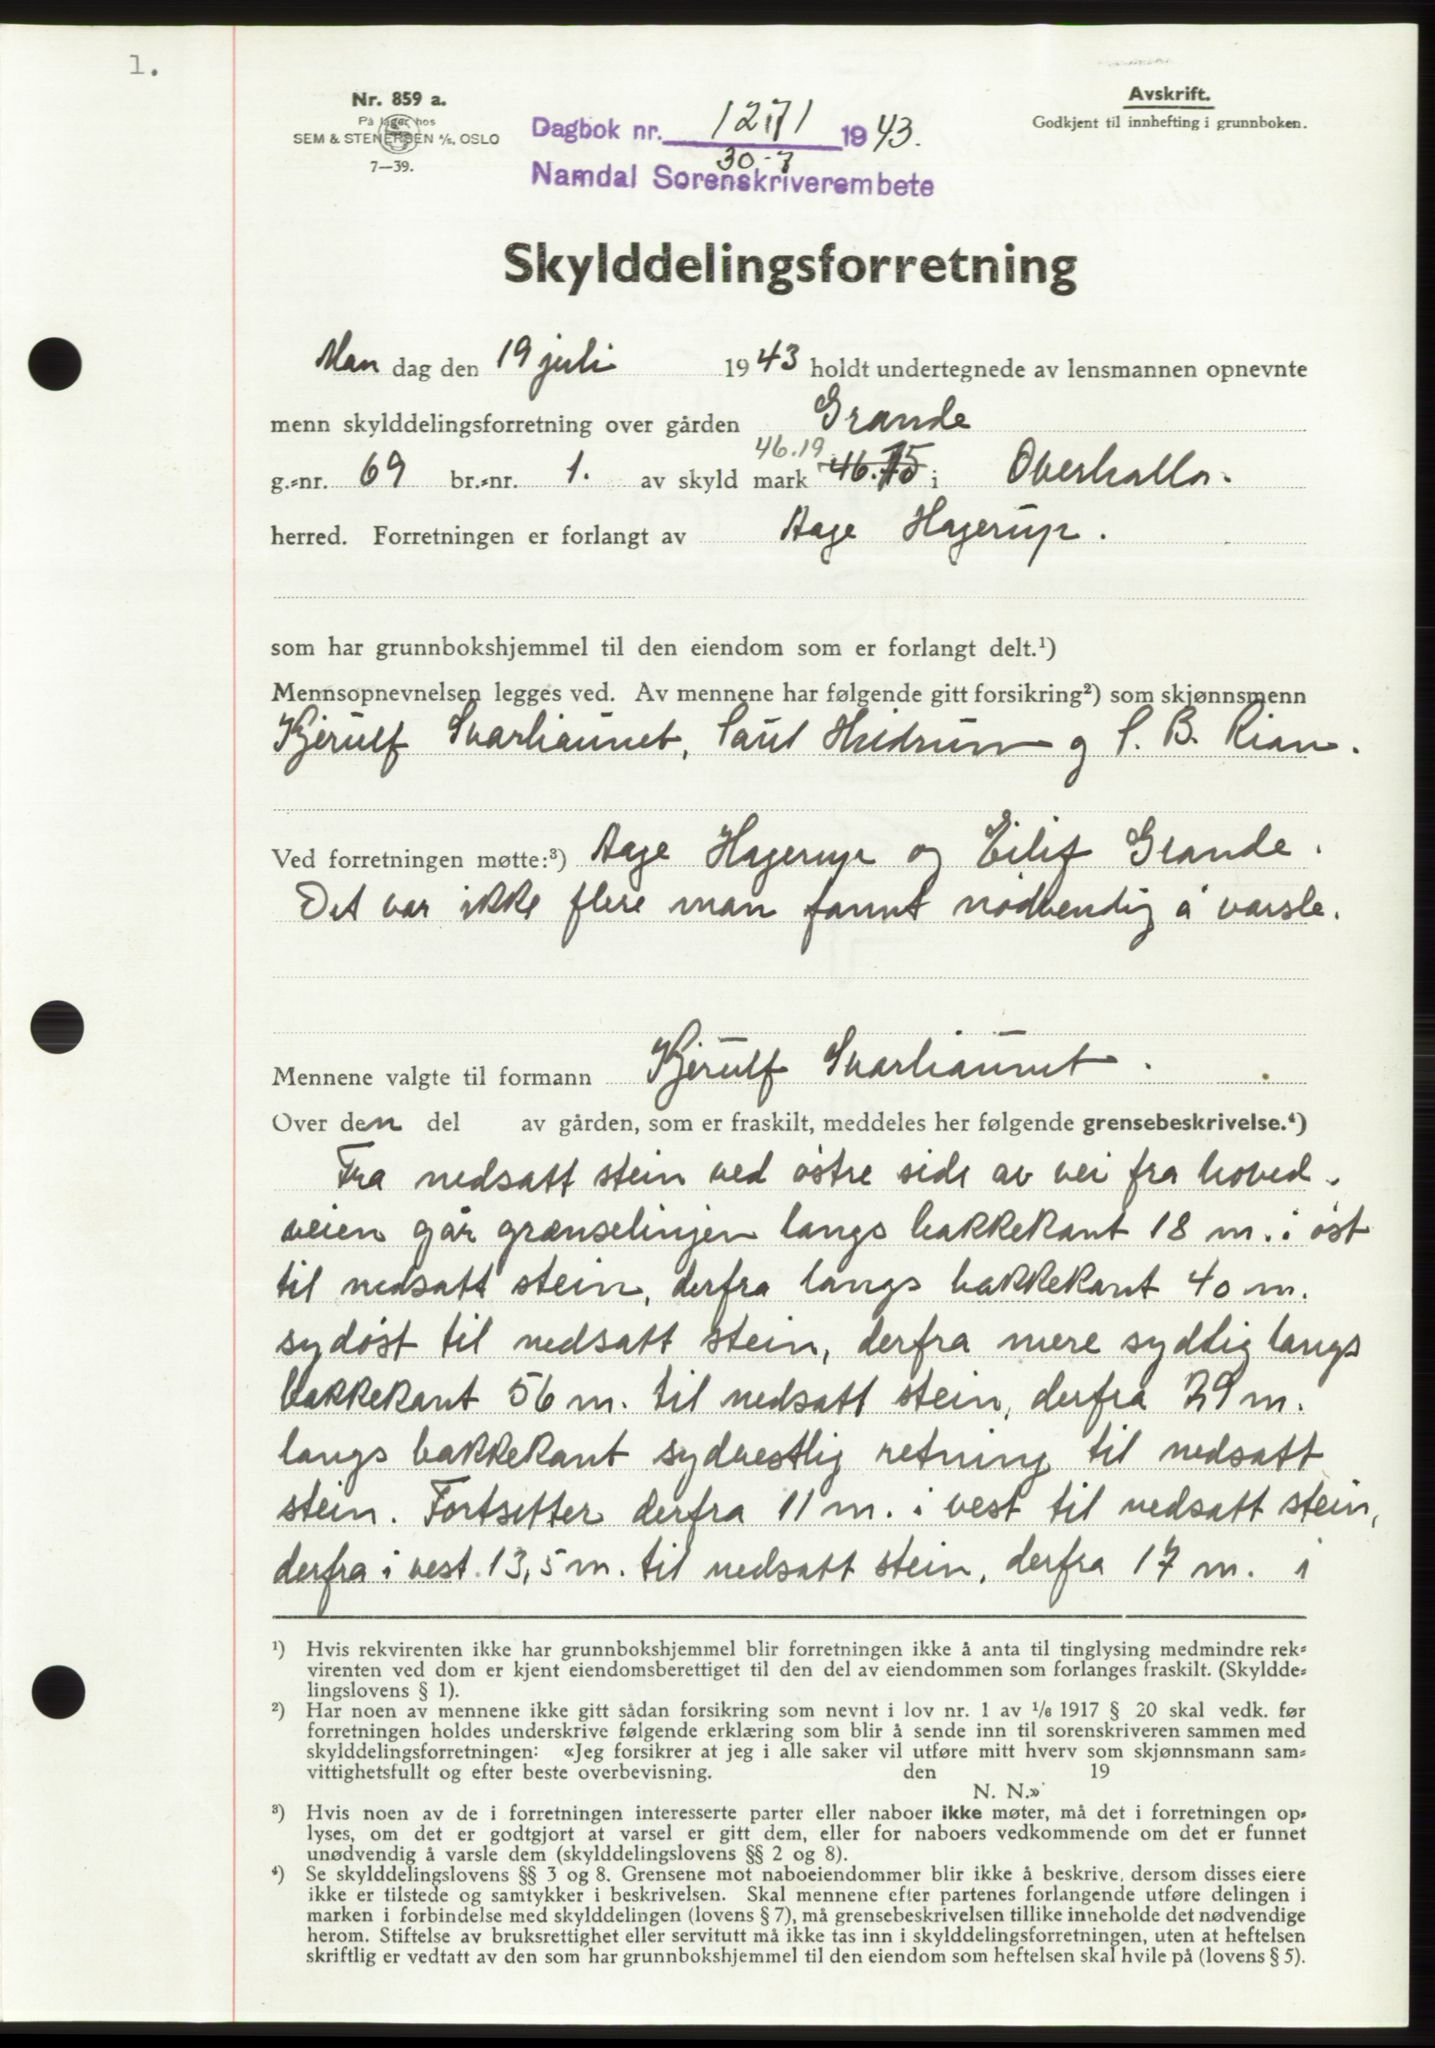 1.
Nr. 859 a.
På lager hos
SEM & STENERSEN A/S, OSLO
7—39.
Dagbok nr. 1271 1943.
30-7
Namdal Sorenskriverembete
Avskrift.
Godkjent til innhefting i grunnboken.
Skylddelingsforretning
Man dag den 19 juli 1943 holdt undertegnede av lensmannen opnevnte
menn skylddelingsforretning over gården Grande
46.19
g.=nr. 69 br.=nr. 1. av skyld mark 46.75 i Overhalla.
herred. Forretningen er forlangt av Aage Hagerup.
som har grunnbokshjemmel til den eiendom som er forlangt delt.¹)
Mennsopnevnelsen legges ved. Av mennene har følgende gitt forsikring²) som skjønnsmenn
Kjerulf Svarliaunet, Paul Hildrum og P. B. Rian.
Ved forretningen møtte:³) Aage Hagerup og Eilif Grande.
Det var ikke flere man fannt nødvendig å varsle.
Mennene valgte til formann Kjerulf Svarliaunet.
Over den del av gården, som er fraskilt, meddeles her følgende grensebeskrivelse.⁴)
Fra nedsatt stein ved østre side av vei fra hoved-
veien går grænselinjen langs bakkekant 18 m. i øst
til nedsatt stein, derfra langs bakkekant 40 m.
sydøst til nedsatt stein, derfra mere syddig langs
bakkekant 56 m. til nedsatt stein, derfra 29 m.
langs bakkekant sydvestlig retning til nedsatt
stein. Fortsetter derfra 11 m. i vest til nedsatt stein,
derfra i vest 13,5 m. til nedsatt stein, derfra 17 m. i
¹) Hvis rekvirenten ikke har grunnbokshjemmel blir forretningen ikke å anta til tinglysing medmindre rek=
virenten ved dom er kjent eiendomsberettiget til den del av eiendommen som forlanges fraskilt. (Skyldde=
lingslovens § 1).
²) Har noen av mennene ikke gitt sådan forsikring som nevnt i lov nr. 1 av 1/6 1917 § 20 skal vedk. før
forretningen holdes underskrive følgende erklæring som blir å sende inn til sorenskriveren sammen med
skylddelingsforretningen: «Jeg forsikrer at jeg i alle saker vil utføre mitt hverv som skjønnsmann sam=
vittighetsfullt og efter beste overbevisning. den 19
N. N.»
³) Hvis noen av de i forretningen interesserte parter eller naboer ikke møter, må det i forretningen op=
lyses, om det er godtgjort at varsel er gitt dem, eller for naboers vedkommende om det er funnet
unødvendig å varsle dem (skylddelingslovens §§ 2 og 8).
⁴) Se skylddelingslovens §§ 3 og 8. Grensene mot naboeiendommer blir ikke å beskrive, dersom disses eiere
ikke er tilstede og samtykker i beskrivelsen. Skal mennene efter partenes forlangende utføre delingen i
marken i forbindelse med skylddelingen (lovens § 7), må grensebeskrivelsen tillike inneholde det nødvendige
herom. Stiftelse av bruksrettighet eller servitutt må ikke tas inn i skylddelingsforretningen, uten at heftelsen
skriftlig er vedtatt av den som har grunnbokshjemmel til den eiendom som heftelsen skal hvile på (lovens § 5).